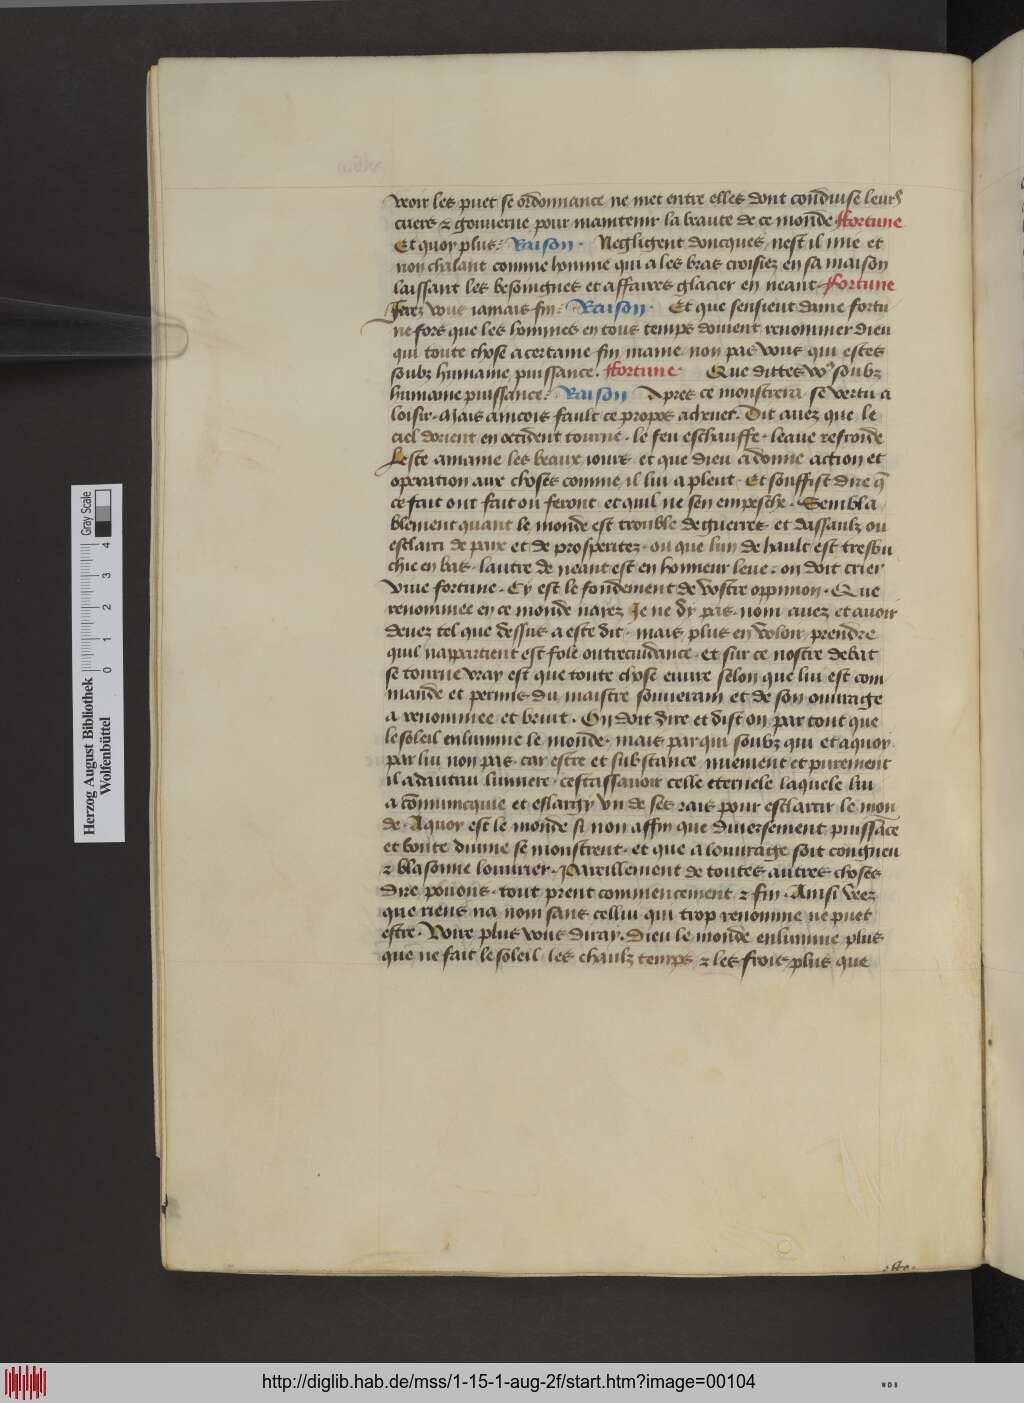 veoir les puet se ordonnance ne met entre elles dont conduise leurs
cuers & gouverne pour maintenir la beaute de ce monde ffortune
Et quoy plus. Raison. Negligent doncques nest il mie et
non chalant comme homme qui a les bras croisiez en sa maison
laissant les besoingnes et affaires glacier en neant. ffortune
Ferez vous iamais fin. Raison. Et que sensieut dame fortu
ne fors que les hommes en tous temps doivent renommer dieu
qui toute chose a certaine fin maine non pas vous qui estes
soubz humaine puissance. ffortune. Que dittes vous soubz
humaine puissance. Raison Apres ce monstrera se vertu a
loisir. Mais aincois fault ce propos achever. Dit avez que le
ciel dorient en occident tourne. le feu eschauffe. leaue refroide
Leste amaine les beaux iours et que dieu a donne action et
operation aux choses comme il lui a pleut. Et souffist dire q̄
ce fait ont fait ou feront et quil ne sen empesche. Sembla
blement quant le monde est trouble de guerres et dassaulz ou
esclarci de paix et de prosperitez. ou que lun de hault est tresbu
chie en bas. lautre de neant est en honneur leve. on doit crier
vive fortune. Cy est le fondement de vostre oppinion. Que
renommee en ce monde nayez Je ne dy pas. nom avez et avoir
devez tel que dessus a este dit. mais plus en voloir prendre
quil nappartient est fole oultrecuidance. et sur ce nostre debat
se tourne vray est que toute chose euvre selon que lui est com
mande et permis du maistre souverain et de son ouvrage
a renommee et bruit. On doit dire et dist on par tout que
le soleil enlumine le monde. mais par qui soubz qui et a quoy.
par lui non pas. car estre et substance nuement et purement
il a dautrui lumiere. cestassavoir celle eternele laquele lui
a communicquie et eslargy un de ses rais pour esclarcir le mon
de. A quoy est le monde si non affin que diversement puissāce
et bonte divine se monstrent. et que a louvrage soit congneu
& blasonne louvrier. Pareillement de toutes autres choses
dire povons. tout prent commencement & fin. Ainsi veez
que riens na nom sans cellui qui trop renomme ne puet
estre. Voire plus vous diray. Dieu le monde enlumine plus
que ne fait le soleil les chaulz temps & les frois plus que
Herzog August Bibliothek
Wolfenbüttel
0 1 2 3 4
Gray Scale
http://diglib.hab.de/mss/1-15-1-aug-2f/start.htm?image=00104